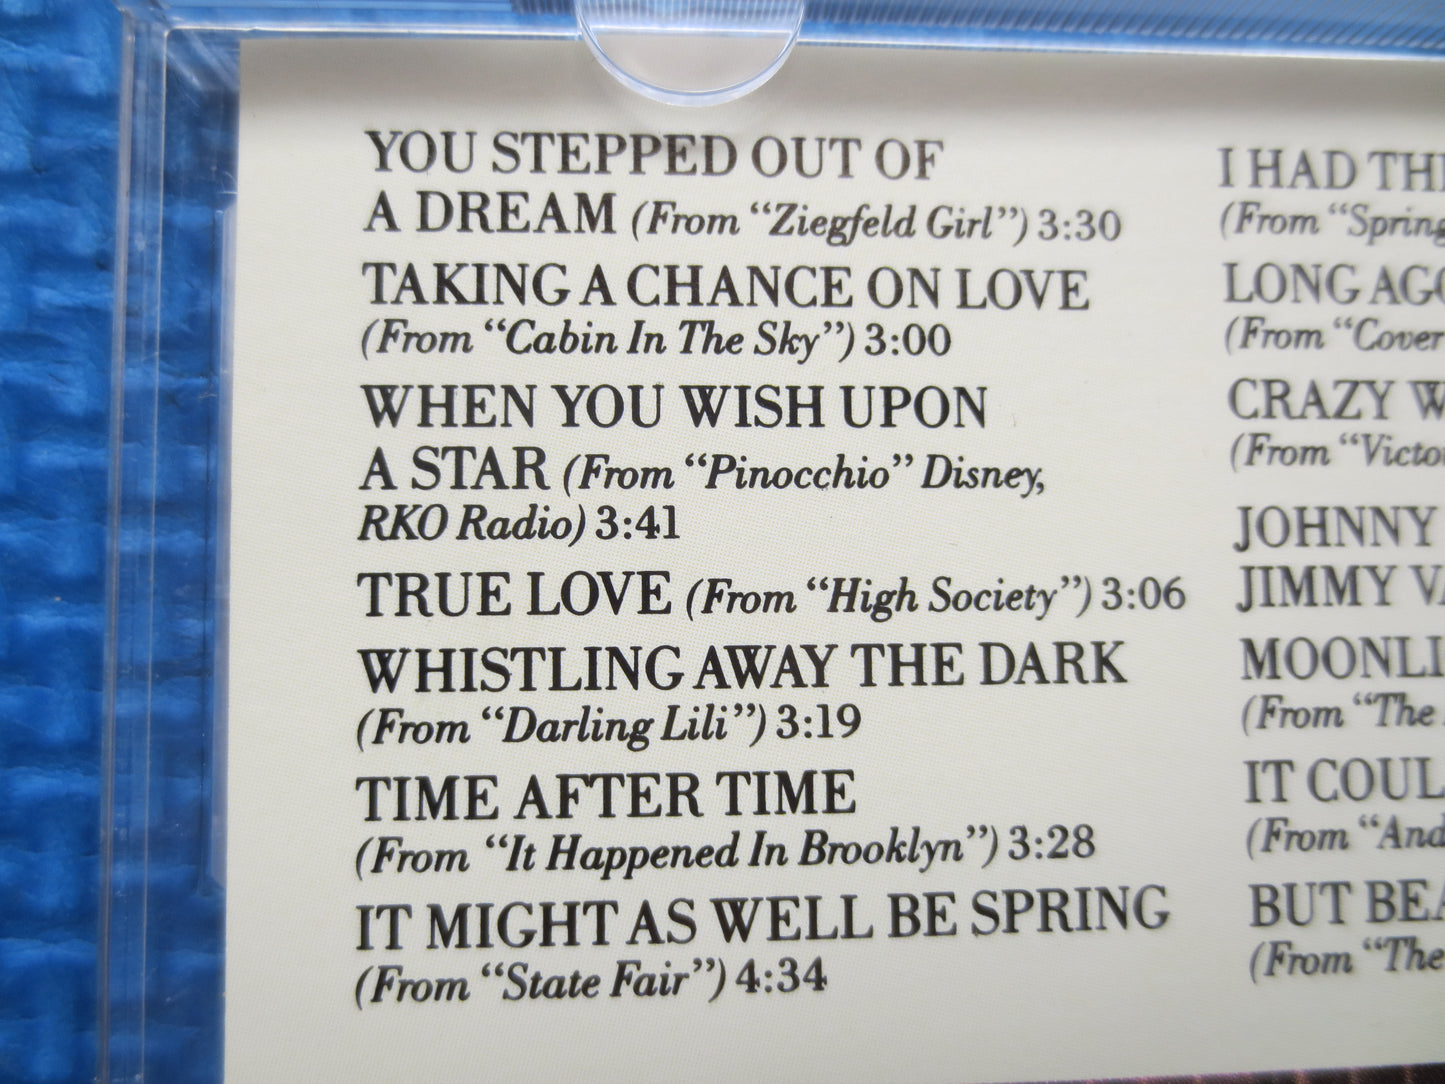 YOU STEPPED OUT OF
A DREAM (From “Ziegfeld Girl”) 3:30
TAKING A CHANCE ON LOVE
(From “Cabin In The Sky”) 3:00
WHEN YOU WISH UPON
A STAR (From “Pinocchio” Disney,
RKO Radio) 3:41
TRUE LOVE (From “High Society”) 3:06
WHISTLING AWAY THE DARK
(From “Darling Lili”) 3:19
TIME AFTER TIME
(From “It Happened In Brooklyn”) 3:28
IT MIGHT AS WELL BE SPRING
(From “State Fair”) 4:34
I HAD
(From “Spring
LONG
(From “Cover
CRAZY
(From
JOHNNY
JIMMY
(From “The
IT
(From “And
BUT
(From “The